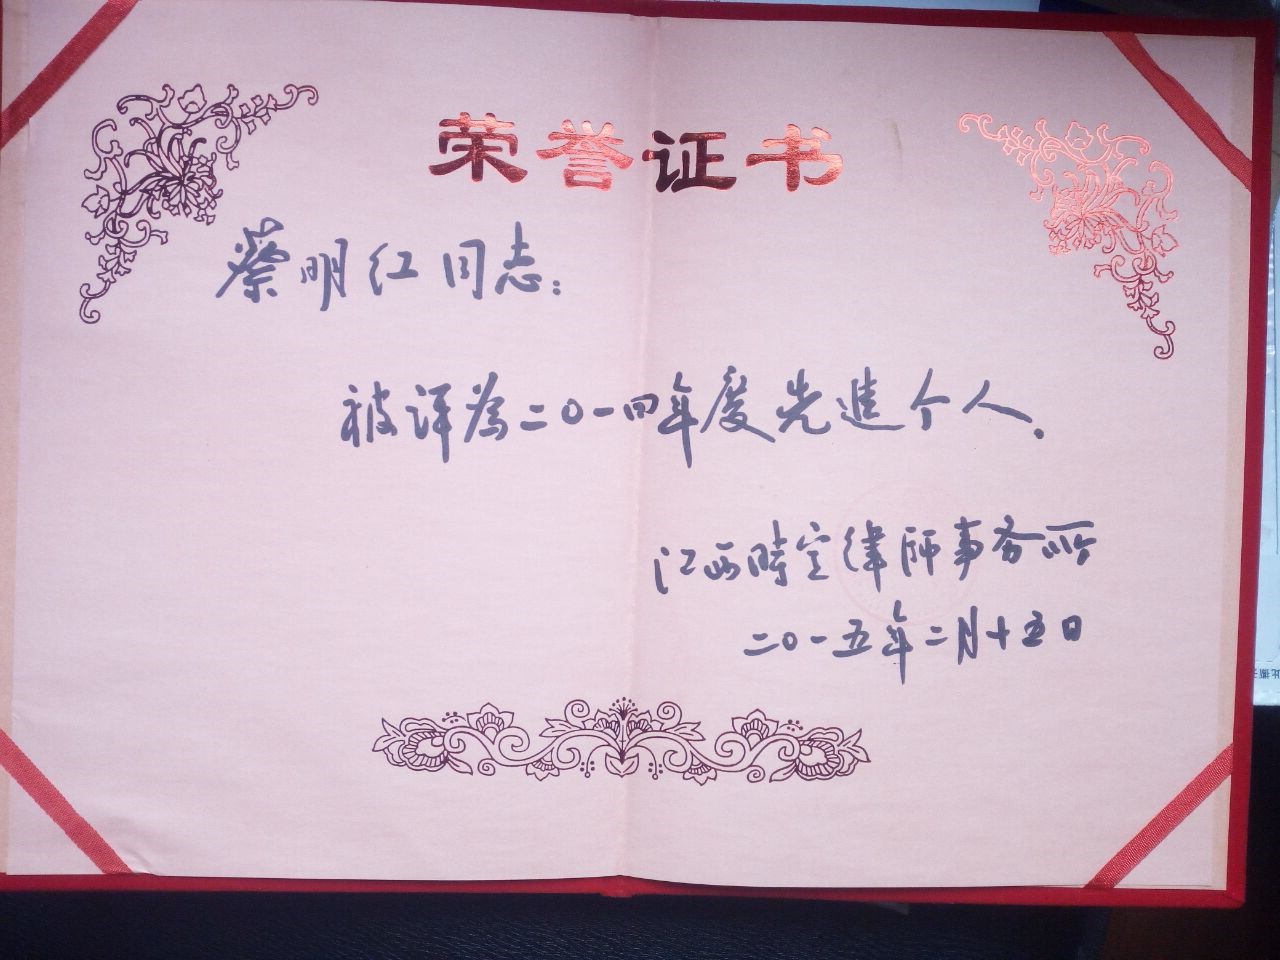 荣誉证书
蔡明红同志：
被评為二〇一四年度先進个人.
江西時空律师事务所
二〇一五年二月十五日